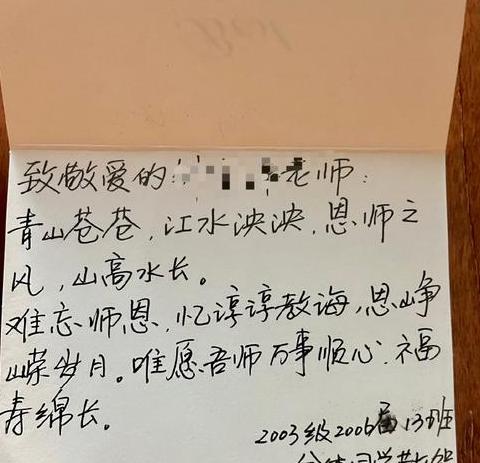 致敬爱的 老师：
青山苍苍，江水泱泱，恩师之
风，山高水长。
难忘师恩，忆谆谆教诲，思峥
嵘岁月。唯愿吾师万事顺心，福
寿绵长。
2003级2006届13班
全体同学